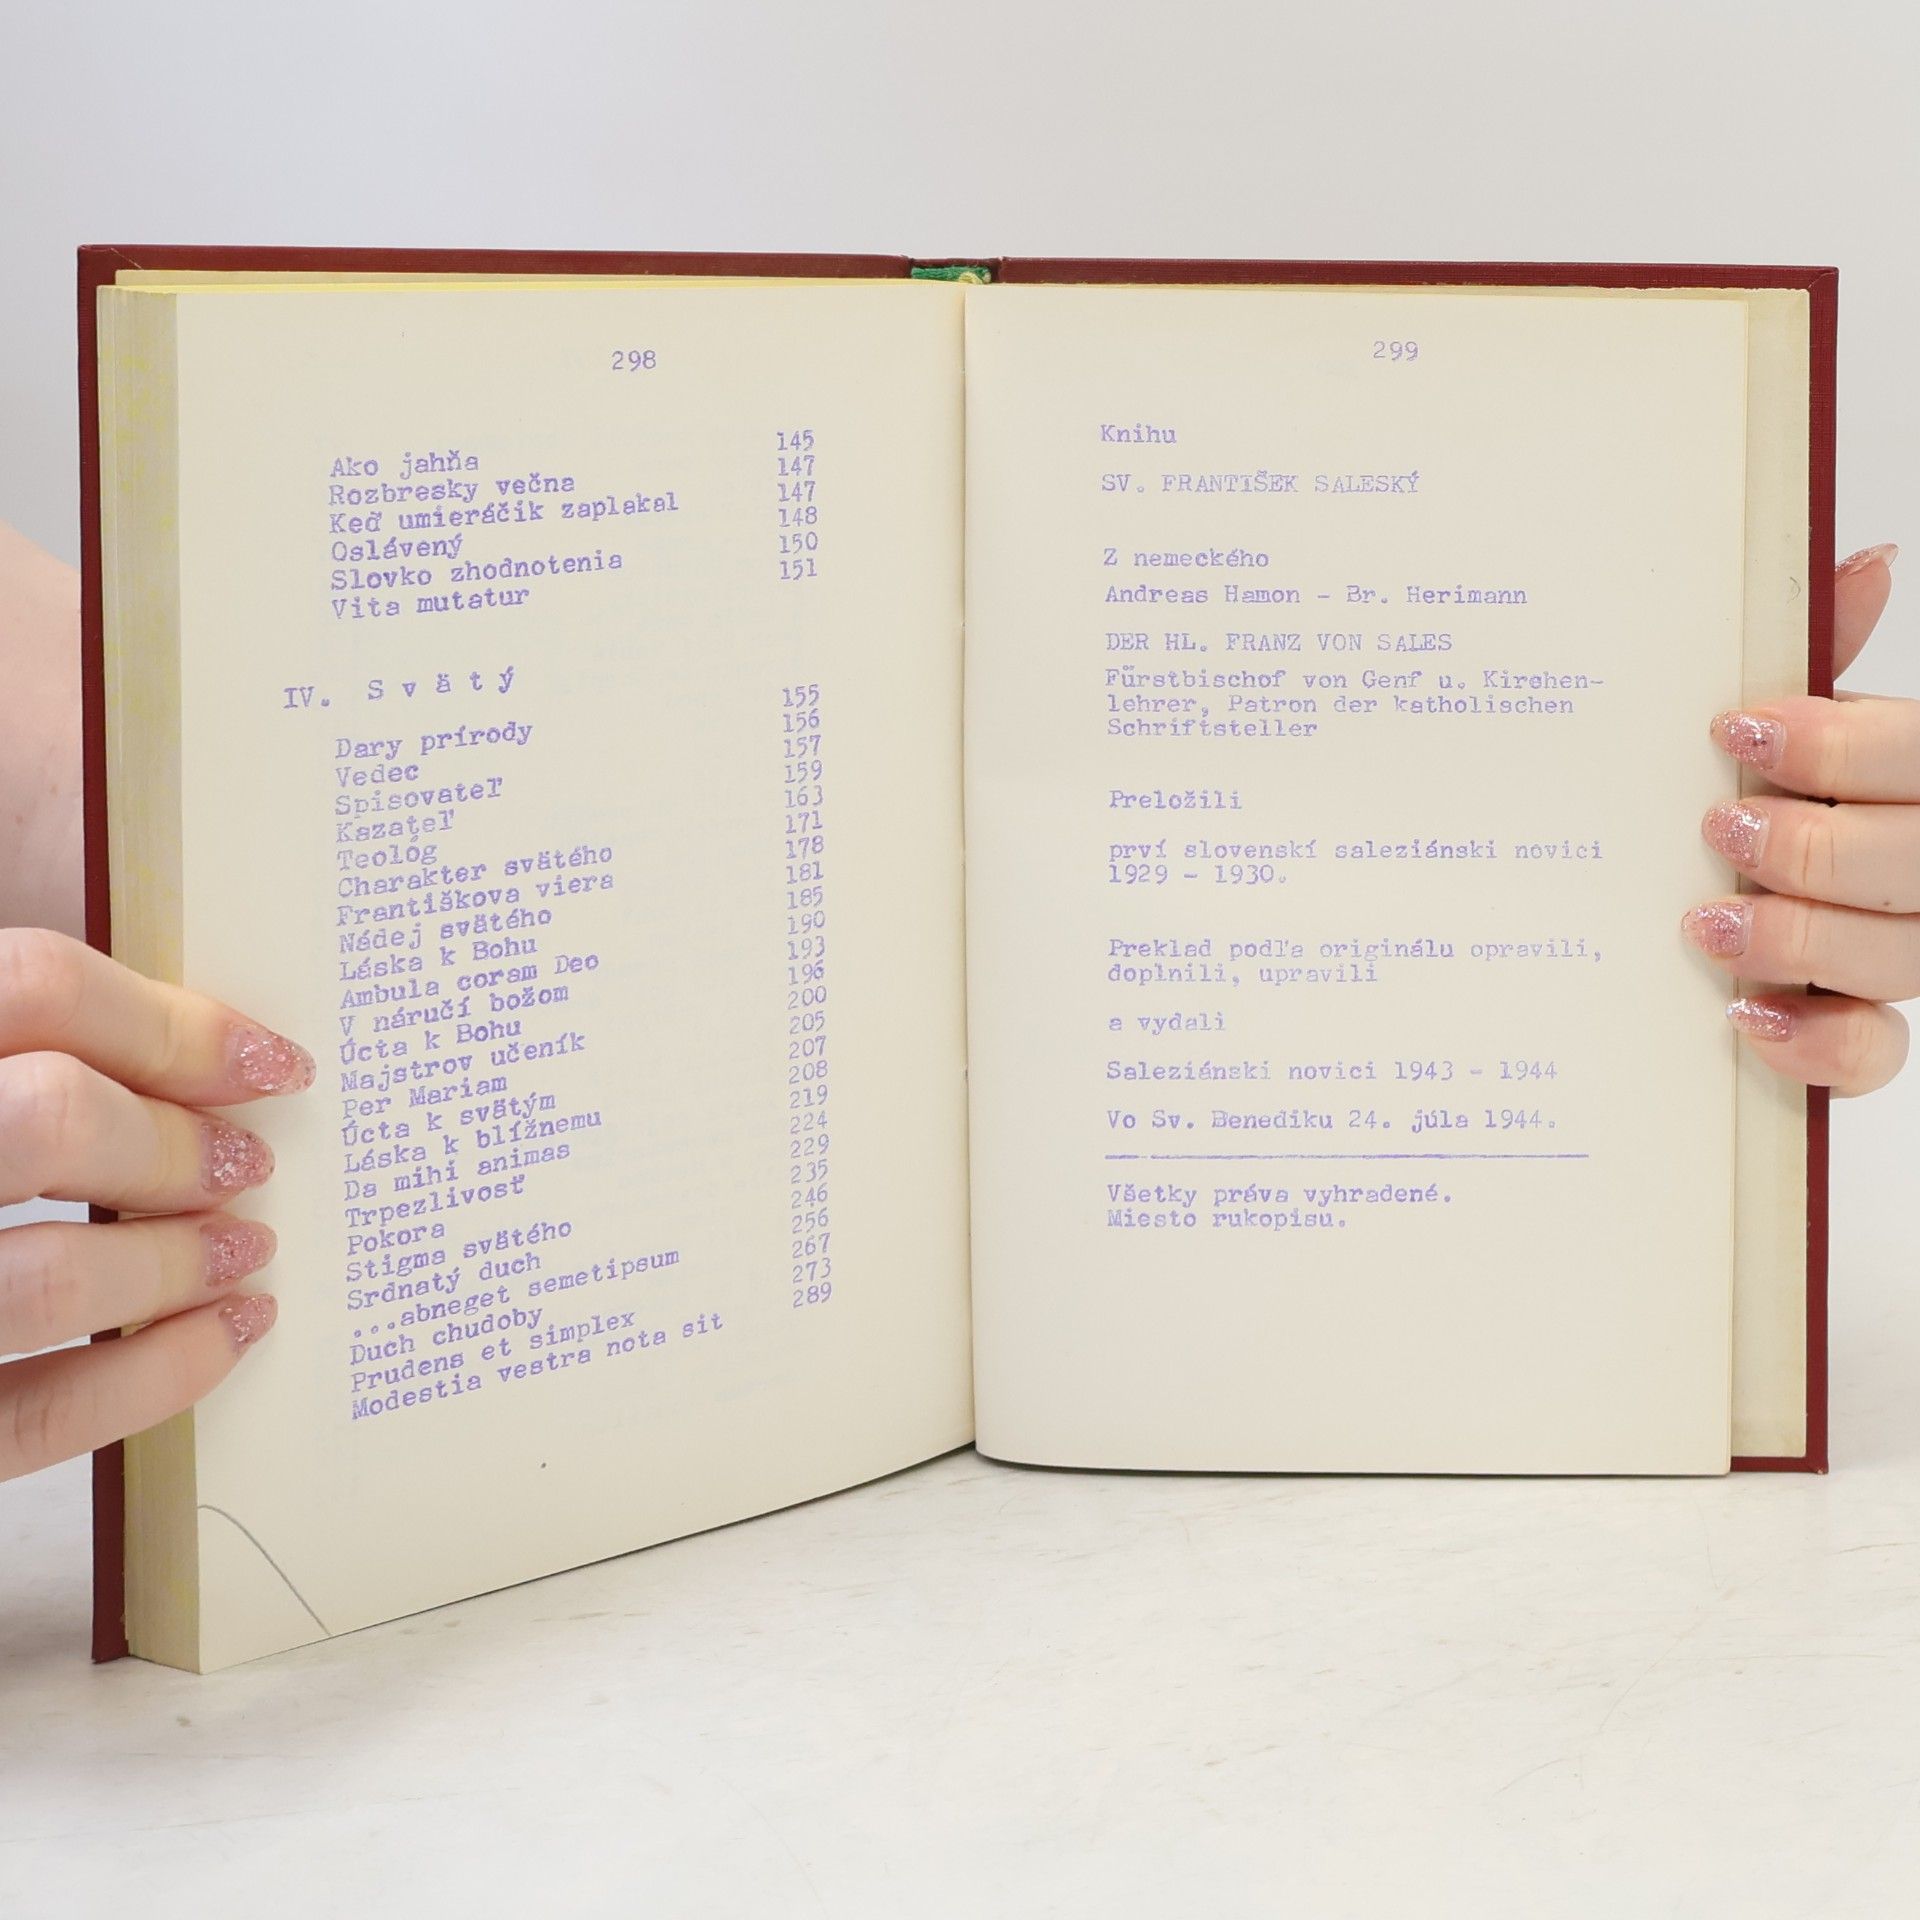 298
Ako jahňa 145
Rozbresky večna 147
Keď umieráčik zaplakal 147
Oslávený 148
Slovko zhodnotenia 150
Vita mutatur 151
IV. S v ä t ý
Dary prírody 155
Vedec 156
Spisovateľ 157
Kazateľ 159
Teológ 163
Charakter svätého 171
Františkova viera 178
Nádej svätého 181
Láska k Bohu 185
Ambula coram Deo 190
V náručí božom 193
Úcta k Bohu 196
Majstrov učeník 200
Per Mariam 205
Úcta k svätým 207
Láska k blížnemu 208
Da mihi animas 219
Trpezlivosť 224
Pokora 229
Stigma svätého 235
Srdnatý duch 246
...abneget semetipsum 256
Duch chudoby 267
Prudens et simplex 273
Modestia vestra nota sit 289
299
Knihu
SV. FRANTIŠEK SALESKÝ
Z nemeckého
Andreas Hamon - Br. Herimann
DER HL. FRANZ VON SALES
Fürstbischof von Genf u. Kirchen-
lehrer, Patron der katholischen
Schriftsteller
Preložili
prví slovenskí saleziánski novici
1929 - 1930.
Preklad podľa originálu opravili,
doplnili, upravili
a vydali
Saleziánski novici 1943 - 1944
Vo Sv. Benediku 24. júla 1944.
Všetky práva vyhradené.
Miesto rukopisu.